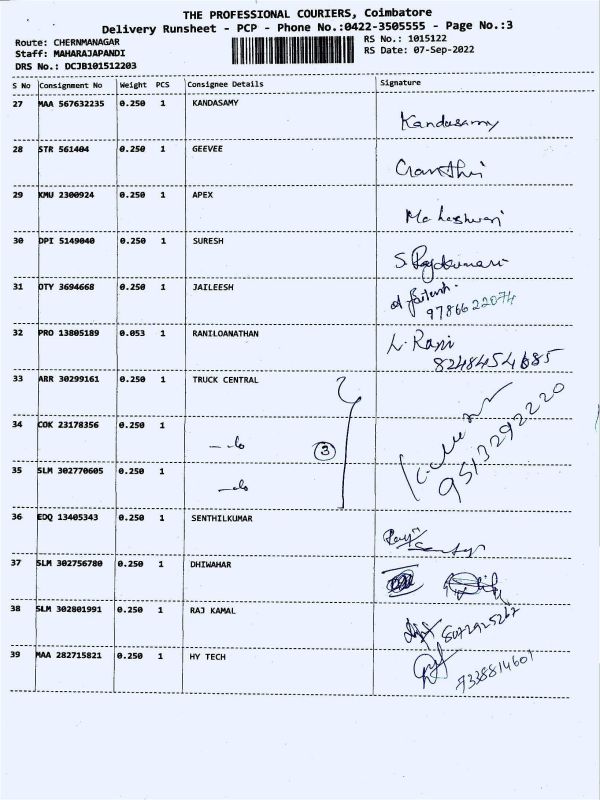 THE PROFESSIONAL COURIERS, Coimbatore
Delivery Runsheet - PCP - Phone No.:0422-3505555 - Page No.:3
Route: CHERNMANAGAR
RS No.: 1015122
Staff: MAHARAJAPANDI
RS Date: 07-Sep-2022
DRS No.: DCJB101512203
S No Consignment No Weight PCS Consignee Details Signature
27 MAA 567632235 0.250 1 KANDASAMY
Kandasamy
28 STR 561404 0.250 1 GEEVEE
29 KMU 2300924 0.250 1 APEX
Maheshwari
30 DPI 5149040 0.250 1 SURESH
S. Rajakumari
31 OTY 3694668 0.250 1 JAILEESH
9786622074
32 PRO 13805189 0.053 1 RANILOANATHAN
L. Rani
8248454685
33 ARR 30299161 0.250 1 TRUCK CENTRAL
34 COK 23178356 0.250 1
— do 3
9513292220
35 SLM 302770605 0.250 1
— do
36 EDQ 13405343 0.250 1 SENTHILKUMAR
37 SLM 302756780 0.250 1 DHIWAHAR
38 SLM 302801991 0.250 1 RAJ KAMAL
39 MAA 282715821 0.250 1 HY TECH
7338814601